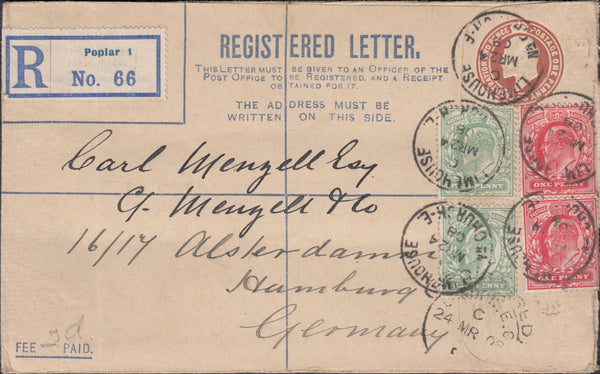 Poplar 1
R No. 66
REGISTERED LETTER.
THIS LETTER MUST BE GIVEN TO AN OFFICER OF THE
POST OFFICE TO BE REGISTERED, AND A RECEIPT
OBTAINED FOR IT.
THE ADDRESS MUST BE
WRITTEN ON THIS SIDE.
Carl Menzell Esq
G. Menzell & Co
16/17 Alsterdamm
Hamburg
Germany
FEE 2d PAID.
POSTAGE ONE PENNY
LIMEHOUSE
CHURCH-E.
MR 24
HALFPENNY
ONE PENNY
LIMEHOUSE
CHURCH-E.
C
MR 24
HALFPENNY
ONE PENNY
C
24 MR